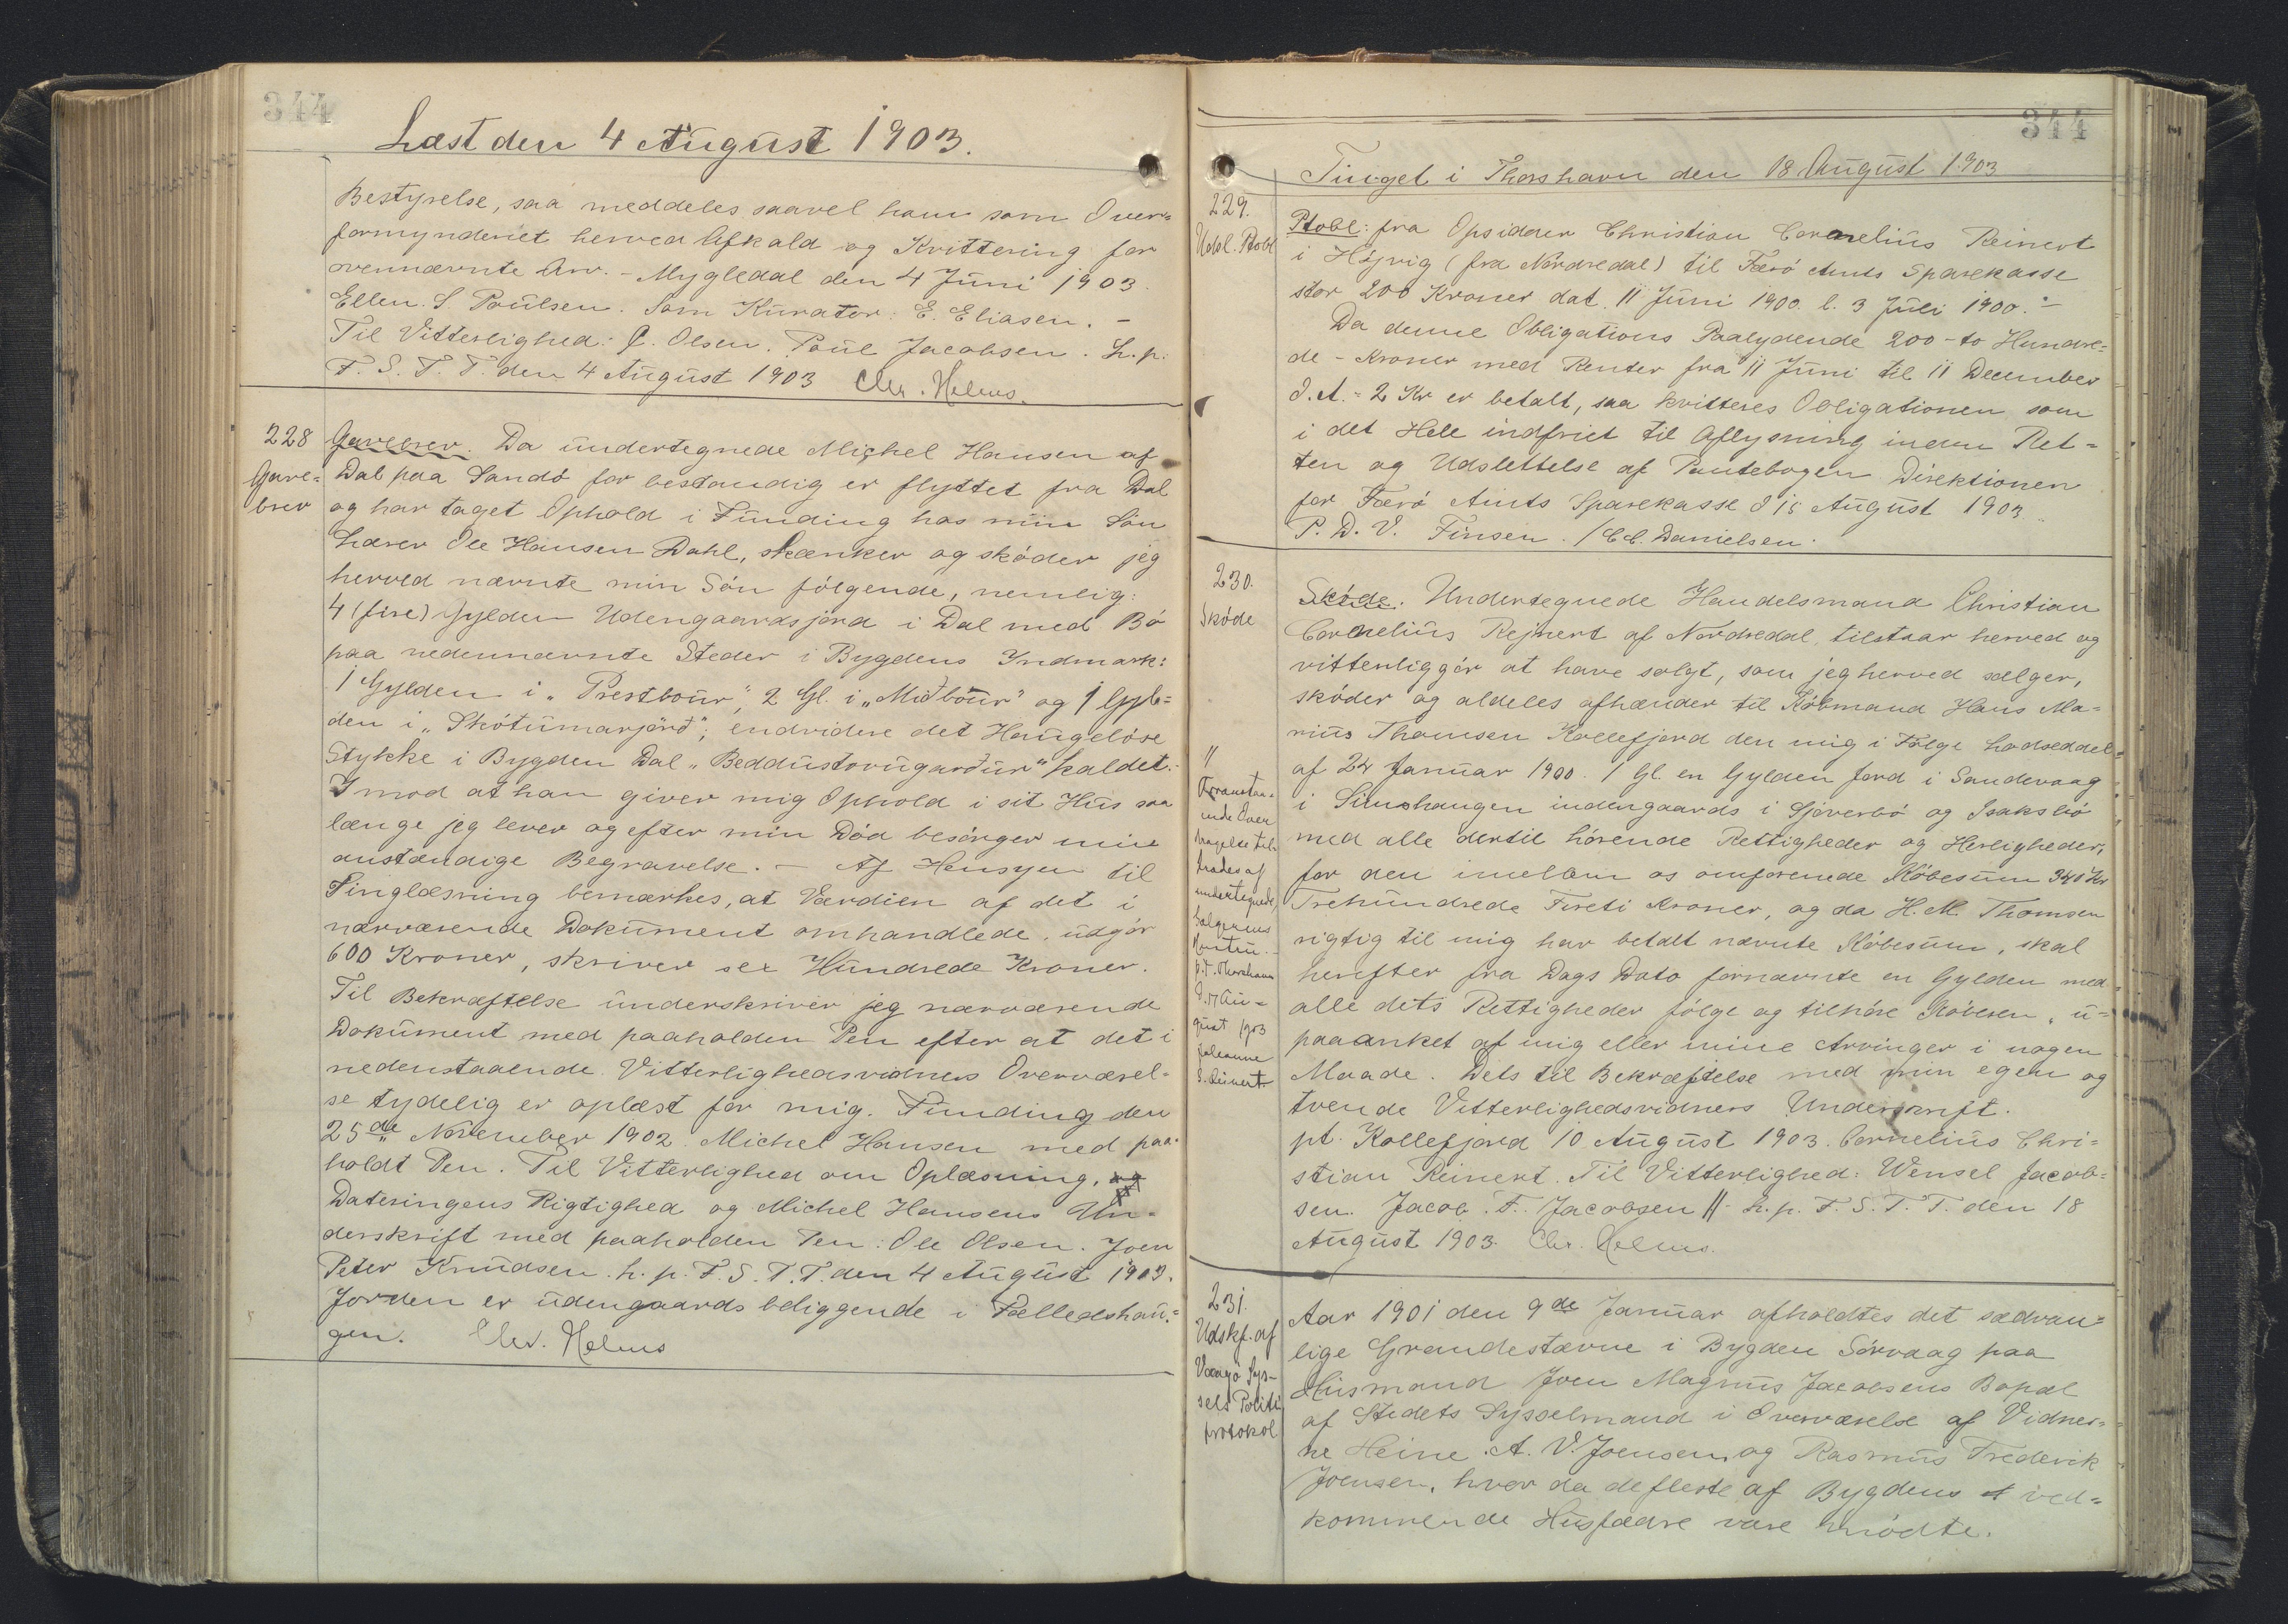 344
Læst den 4 August 1903.
Bestyrelse, saa meddeles saavel ham som Over=
formynderiet herved Afkald og Kvittering for
ovennævnte Arv. - Mygledal den 4 Juni 1903.
Ellen S. Poulsen. Som Kurator: E. Eliasen. -
Til Vitterlighed: J. Olsen. Poul Jacobsen. h. p.
F. S. T. T. den 4 August 1903 Chr. Helms.
228
Gave=
brev
Gavebrev. Da undertegnede Michel Hansen af
Dal paa Sandö for bestandig er flyttet fra Dal
og har taget Ophold i Funding hos min Sön
Lærer Ole Hansen Dahl, skænker og sköder jeg
herved nævnte min Sön fölgende, nemlig:
4 (fire) Gylden Udengaardsjord i Dal med Bö
paa nedennævnte Steder i Bygdens Indmark:
1 Gylden i „Prestbour", 2 Gl. i „Miðbour" og 1 Gyl=
den i „Skótumarjörð"; endvidere det Haugelöse
Stykke i Bygden Dal „Beddustovugarður" kaldet. -
Imod at han giver mig Ophold i sit Hus saa
længe jeg lever og efter min Död besörger min
anstændige Begravelse. - Af Hensyn til
Tinglæsning bemærkes, at Værdien af det i
nærværende Dokument omhandlede, udgör
600 Kroner, skriver sex Hundrede Kroner.
Til Bekræftelse underskriver jeg nærværende
Dokument med paaholden Pen efter at det i
nedenstaaende Vitterlighedsvidners Overværel=
se tydelig er oplæst for mig. Funding den
25de November 1902. Michel Hansen med paa=
holdt Pen. Til Vitterlighed om Oplæsning, og
Dateringens Rigtighed og Michel Hansens Un=
derskrift med paaholden Pen: Ole Olsen. Joen
Peter Knudsen. h. p. F. S. T. T. den 4 August 1903.
Jorden er udengaards beliggende i Fælledshau=
gen. Chr. Helms
344
Tinget i Thorshavn den 18 August 1903
229.
Udsl. Ptobl
Ptobl: fra Opsidder Christian Cornelius Reinert
i Höjvig (fra Nordredal) til Færö Amts Sparekasse
stor 200 Kroner dat. 11 Juni 1900. l. 3 Juli 1900. -
Da denne Obligations Paalydende 200 - to Hundre=
de - Kroner med Renter fra 11 Juni til 11 December
d. A. = 2 Kr er betalt, saa kvitteres Obligationen som
i det Hele indfriet til Aflysning inden Ret=
ten og Udslettelse af Pantebogen. Direktionen
for Færö Amts Sparekasse d 15 August 1903.
P. D. V. Finsen. / C. C. Danielsen.
230.
Sköde
Sköde. Undertegnede Handelsmand Christian
Cornelius Rejnert af Nordredal tilstaar herved og
vitterliggör at have solgt, som jeg herved sælger,
sköder og aldeles afhænder til Köbmand Hans Ma=
rius Thomsen Kollefjord den mig i Fölge Lodseddel
af 24 Januar 1900. 1 Gl. en Gylden Jord i Sandevaag
i Simshaugen indengaards i Gjöverbö og Isaksbö
med alle dertil hörende Rettigheder og Herligheder,
for den imellem os omforenede Köbesum 340 Kr
Trehundrede Fireti Kroner, og da H. M. Thomsen
rigtig til mig har betalt nævnte Köbesum, skal
herefter fra Dags Dato fornævnte en Gylden med
alle dets Rettigheder fölge og tilhöre Köberen, u=
paaanket af mig eller mine Arvinger i nogen
Maade. Dets til Bekræftelse med min egen og
tvende Vitterlighedsvidners Underskrift.
pt. Kollefjord 10 August 1903. Cornelius Chri=
stian Reinert. Til Vitterlighed: Wensel Jacob=
sen. Jacob. F. Jacobsen // h. p. F. S. T. T. den 18
August 1903. Chr. Helms.
//
Foranstaa=
ende Over
dragelse til=
trædes af
undertegnede,
Sælgerens
Hustru. -
p. t. Thorshavn
d. 17 Au=
gust 1903
Johanne
S. Reinert
231.
Udskf. af
Vaagö Sys=
sels Politi
protokol
Aar 1901 den 9de Januar afholdtes det sædvan=
lige Grandestævne i Bygden Sörvaag paa
Husmand Joen Magnus Jacobsens Bopæl
af Stedets Sysselmand i Overværelse af Vidner=
ne Heine A. V. Joensen og Rasmus Frederik
Joensen, hvor da de fleste af Bygdens ved=
kommende Husfædre vare mödte.